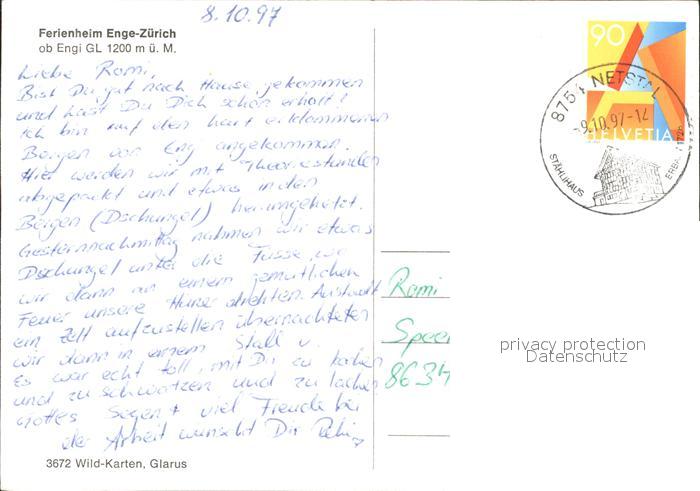 8.10.97
Ferienheim Enge-Zürich
ob Engi GL 1200 m ü. M.
Liebe Romi,
Bist Du gut nach Hause gekommen
und hast Du Dich schön erholt?
Ich bin auf den hart erklommenen
Bergen von Engi angekommen.
Hier werden wir mit Theoriestunden
abgepackt und etwas in den
Bergen (Dschungel) herumgehetzt.
Gesternnachmittag nahmen wir etwas
Dschungel unter die Füsse, wo
wir dann an einem gemütlichen
Feuer unsere drehten. Anstatt
ein Zelt aufzustellen übernachteten
wir dann in einem Stall u.
Es war echt toll, mit Dir zu kochen
und zu schwatzen und zu lachen
Gottes Segen + viel Freude bei
der Arbeit wünscht Dir
3672 Wild-Karten, Glarus
90
HELVETIA
8754 NETSTAL
-9.10.97-12
STÄHLIHAUS
ERB.
Romi
8634
privacy protection
Datenschutz